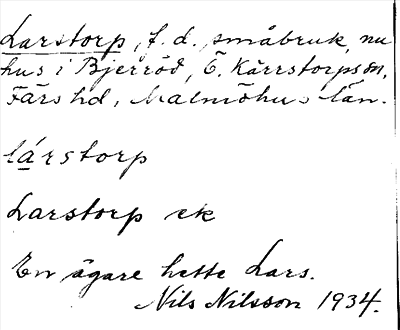 Larstorp, f. d. småbruk, nu
hus i Bjerröd, Ö. Kärrstorps sn,
Färs hd, Malmöhus län.
lárstorp
Larstorp ek
En ägare hette Lars.
Nils Nilsson 1934.